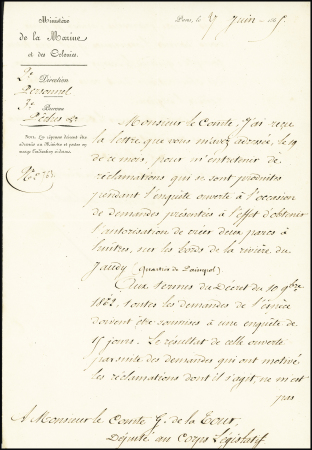 Ministère
de la Marine
et des Colonies.
Direction
Personnel
Bureau
Pêches &a
Paris, le 27 Juin
Monsieur le Comte, J'ai reçu
la lettre que vous m'avez adressée, le 19
de ce mois, pour m'entretenir de
réclamations qui se sont produites
pendant l'enquête ouverte à l'occasion
de demandes présentées à l'effet d'obtenir
l'autorisation de créer deux parcs à
huîtres, sur les bords de la rivière du
Jaudy (quartier de Paimpol)
Aux termes du Décret du 10 9bre
1862, toutes les demandes de l'espèce
doivent être soumises à une enquête de
15 jours. Le résultat de celle ouverte
par suite des demandes qui ont motivé
les réclamations dont il s'agit, ne m'est
pas
A Monsieur le Comte de la Tour,
Député au Corps Législatif